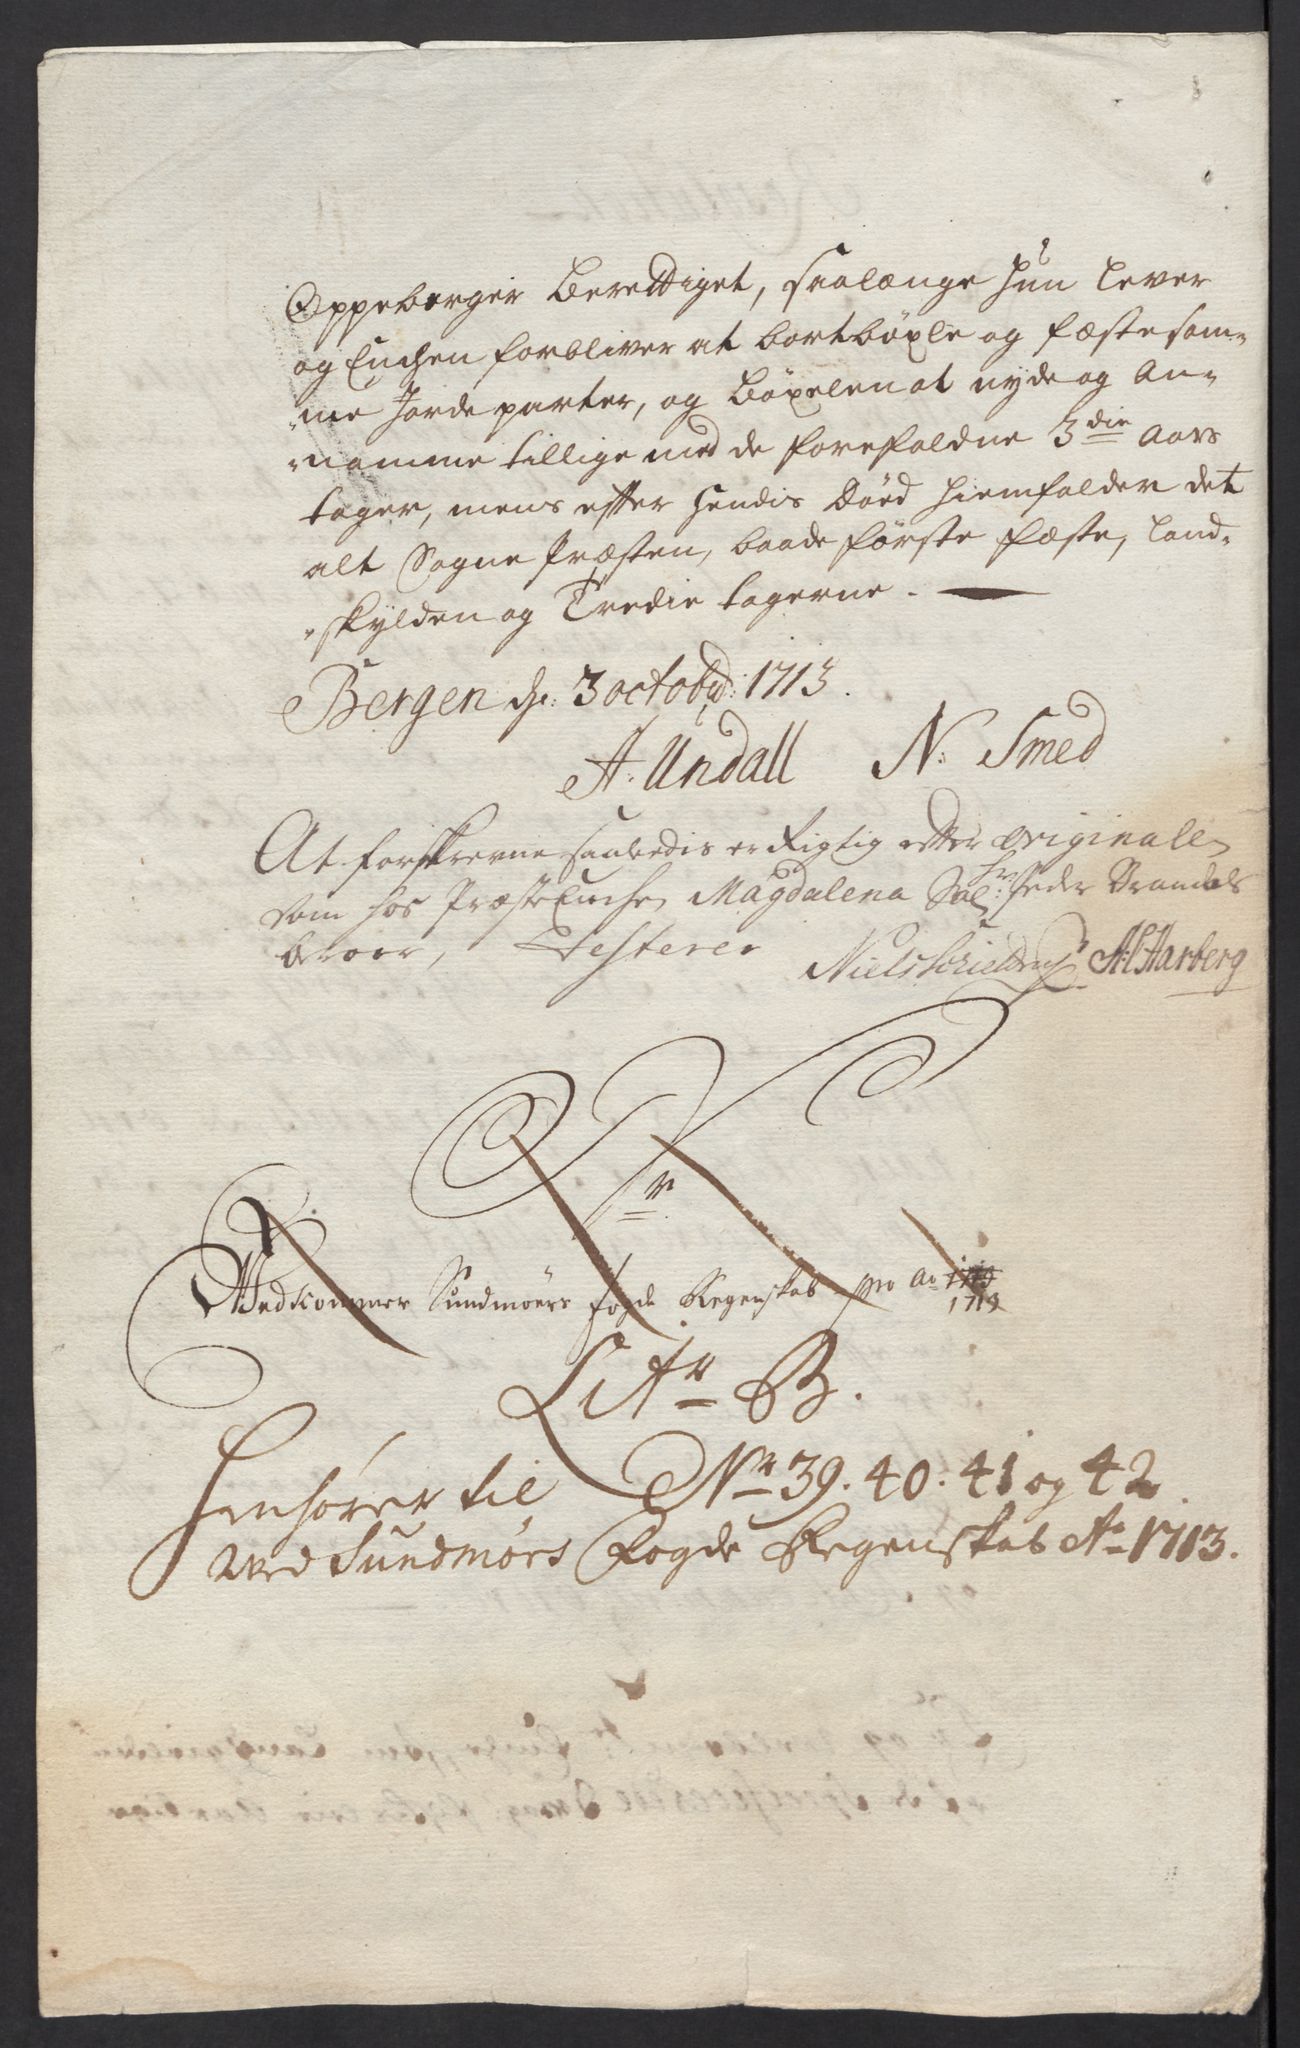 Oppeberger Berettiget, saalænge hun lever
og Enchen forbliver at bortböxle og fæste sam-
"me Jorde parter, og Böxelen at nyde og An-
"namme tillige med de forefaldne 3die Aars
tager, mens efter hendis Död hiemfalder det
alt Sogne Præsten, baade förste fæste, land-
"skylden og Tredie tagerne.
Bergen dn: 3 octobr: 1713.
A. Undall N: Smed
At forskrevne saaledis er Rigtig efter originalen
som hos Præste Enchen Magdalena Sal: Hr: Peder
beroer, Testerer Niels A: Harberg
Vedkommer Sundmöers fogde Regenskab pro Ao 1713
Litr B.
Henhörer til Nr 39. 40. 41 og 42
ved Sundmörs Fogde Regenskab Ao 1713.